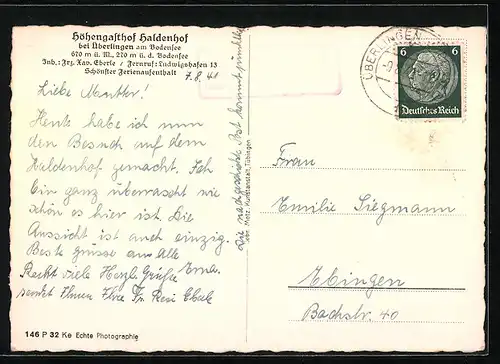 Höhengasthof Haldenhof
bei Überlingen am Bodensee
670 m ü. M., 270 m ü. d. Bodensee
Inh.: Frz. Xav. Eberle / Fernruf: Ludwigshafen 13
Schönster Ferienaufenthalt
7.8.41
Liebe Mutter!
Heute habe ich nun
den Besuch auf dem
Haldenhof gemacht. Ich
bin ganz überrascht wie
schön es hier ist. Die
Aussicht ist auch einzig.
Beste Grüsse an Alle
Erna.
Recht viele Herzl. Grüße
sendet Ihnen Ihre Fr.
146 P 32 Ke Echte Photographie
Die nachgeschickte Post kommt pünktlich
Gebr. Metz, Kunstanstalt, Tübingen
ÜBERLINGEN
6 6
Deutsches Reich
Frau
Emilie Siegmann
Ebingen
Bachstr. 40